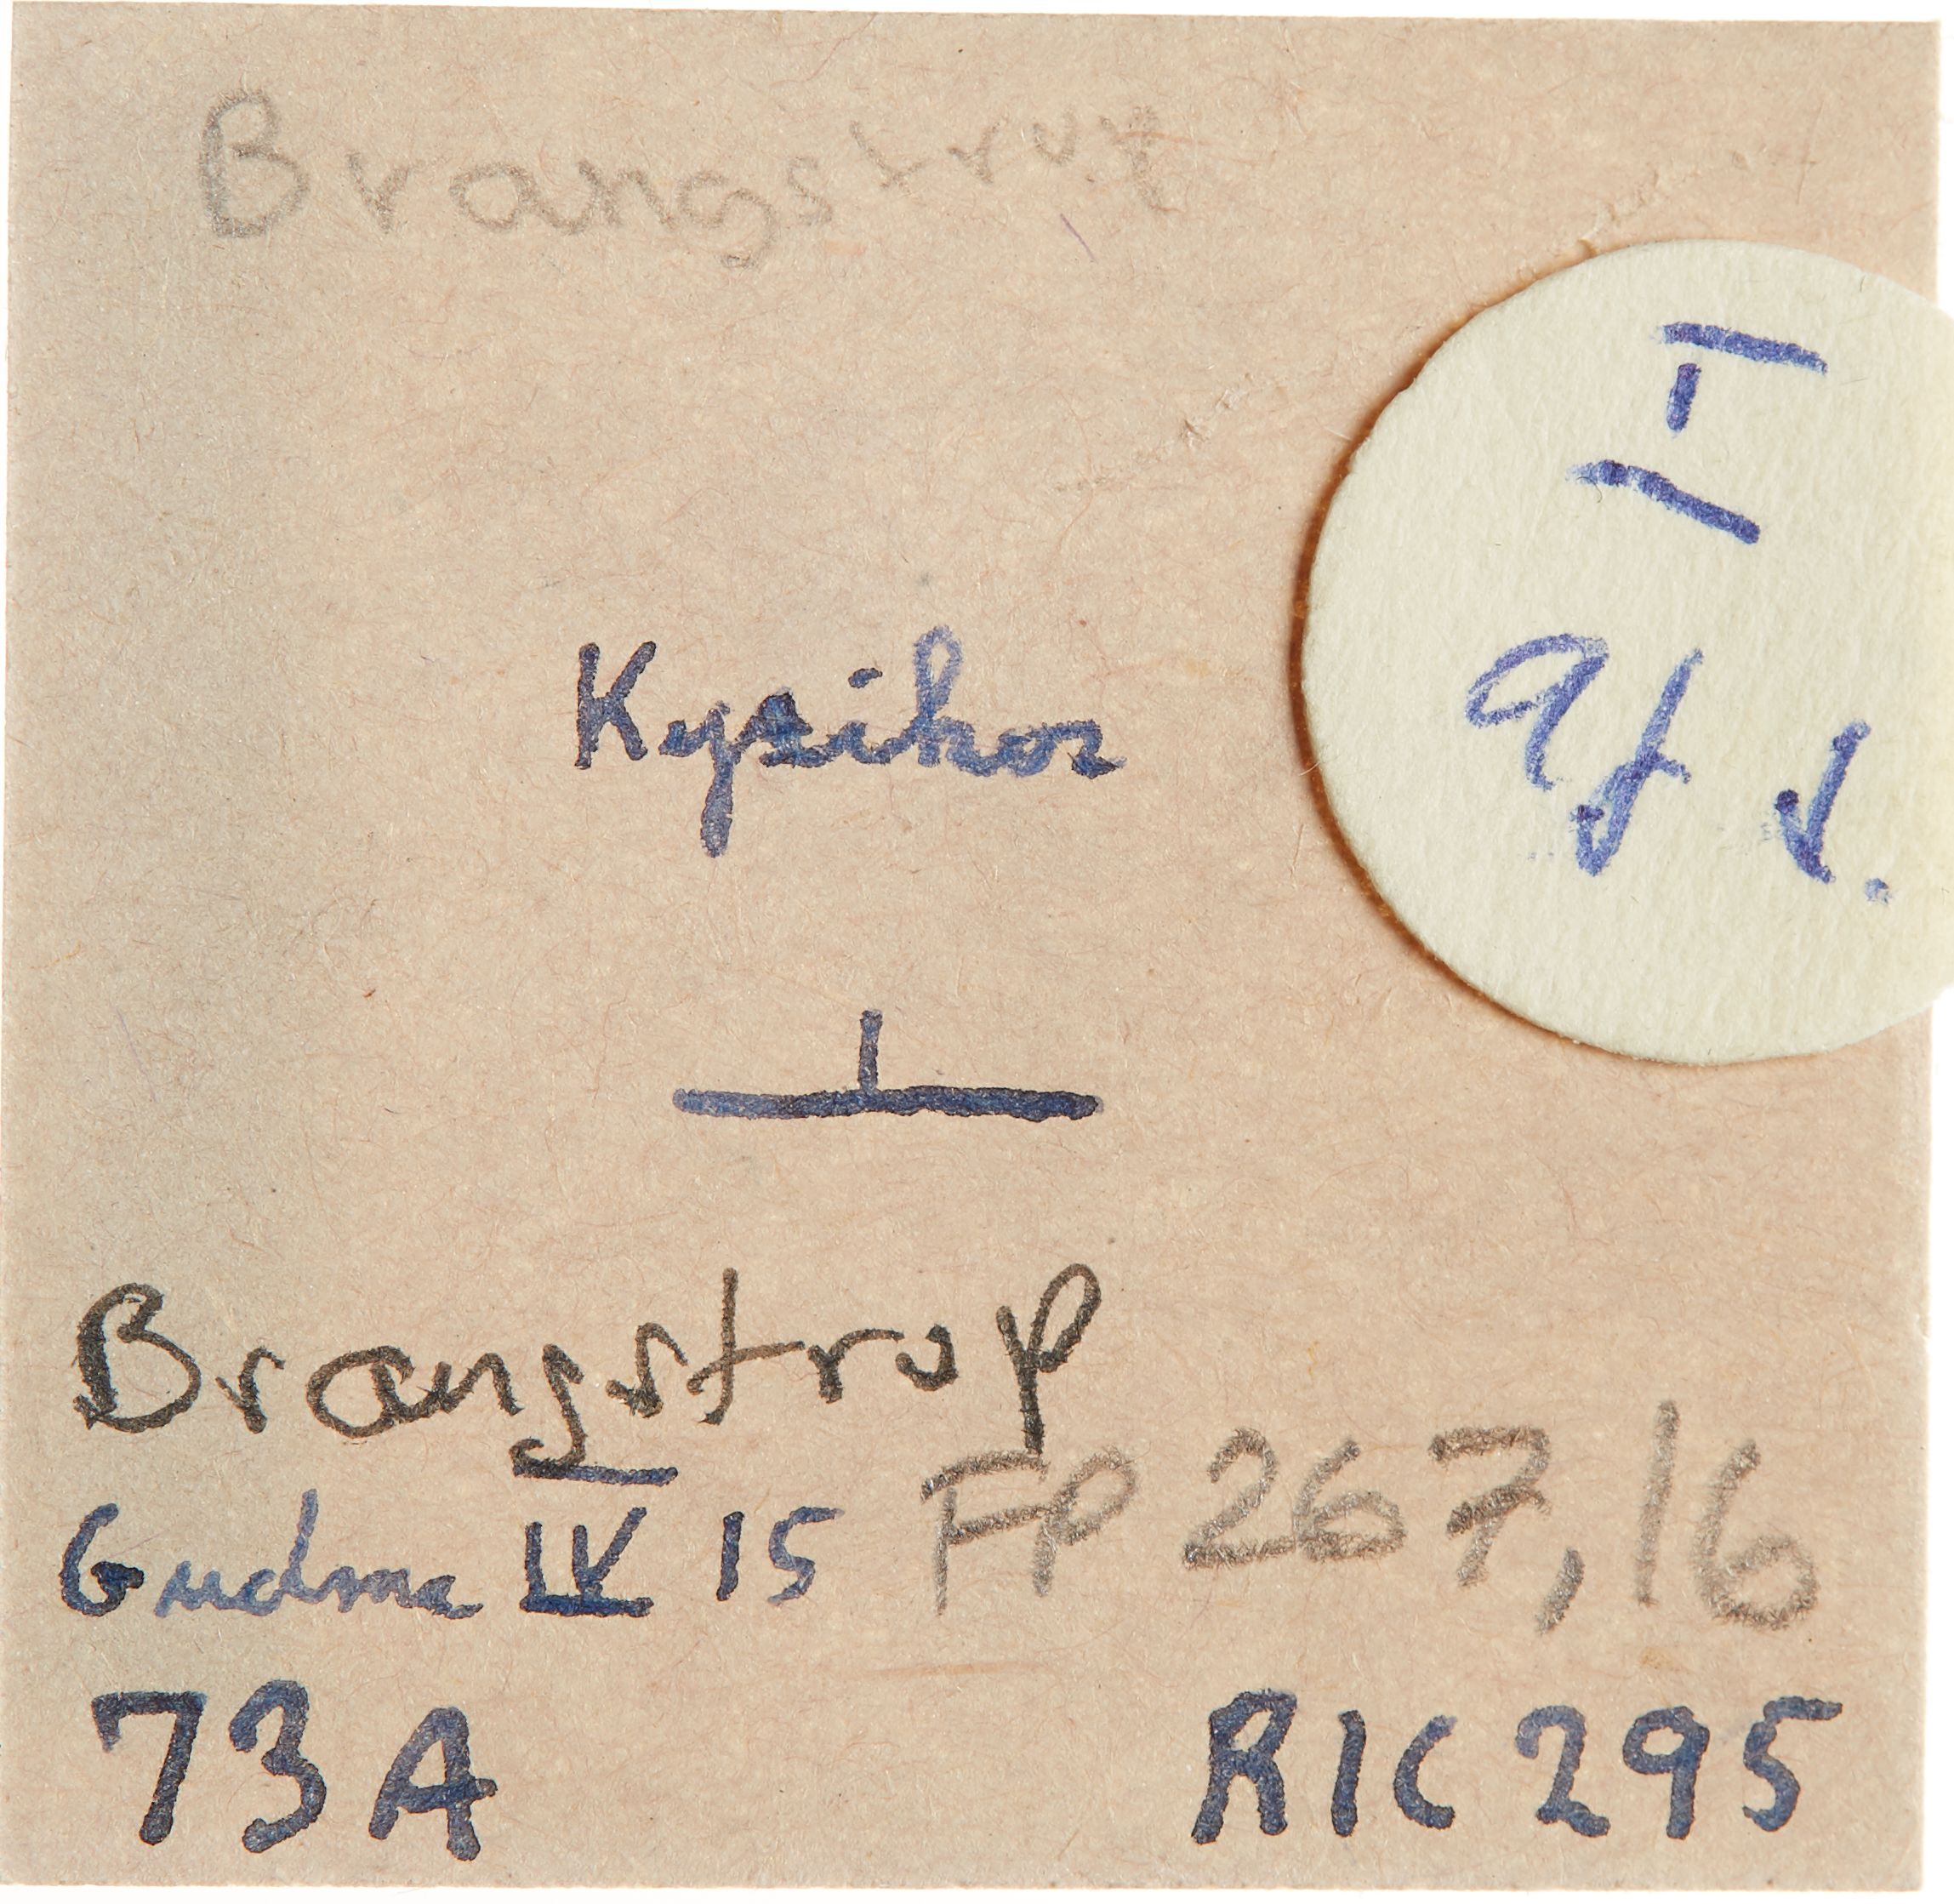 Brangstrup
I
af d.
Kyzikos
Brangstrup
Gudme IV 15 FP 267,16
73A RIC 295